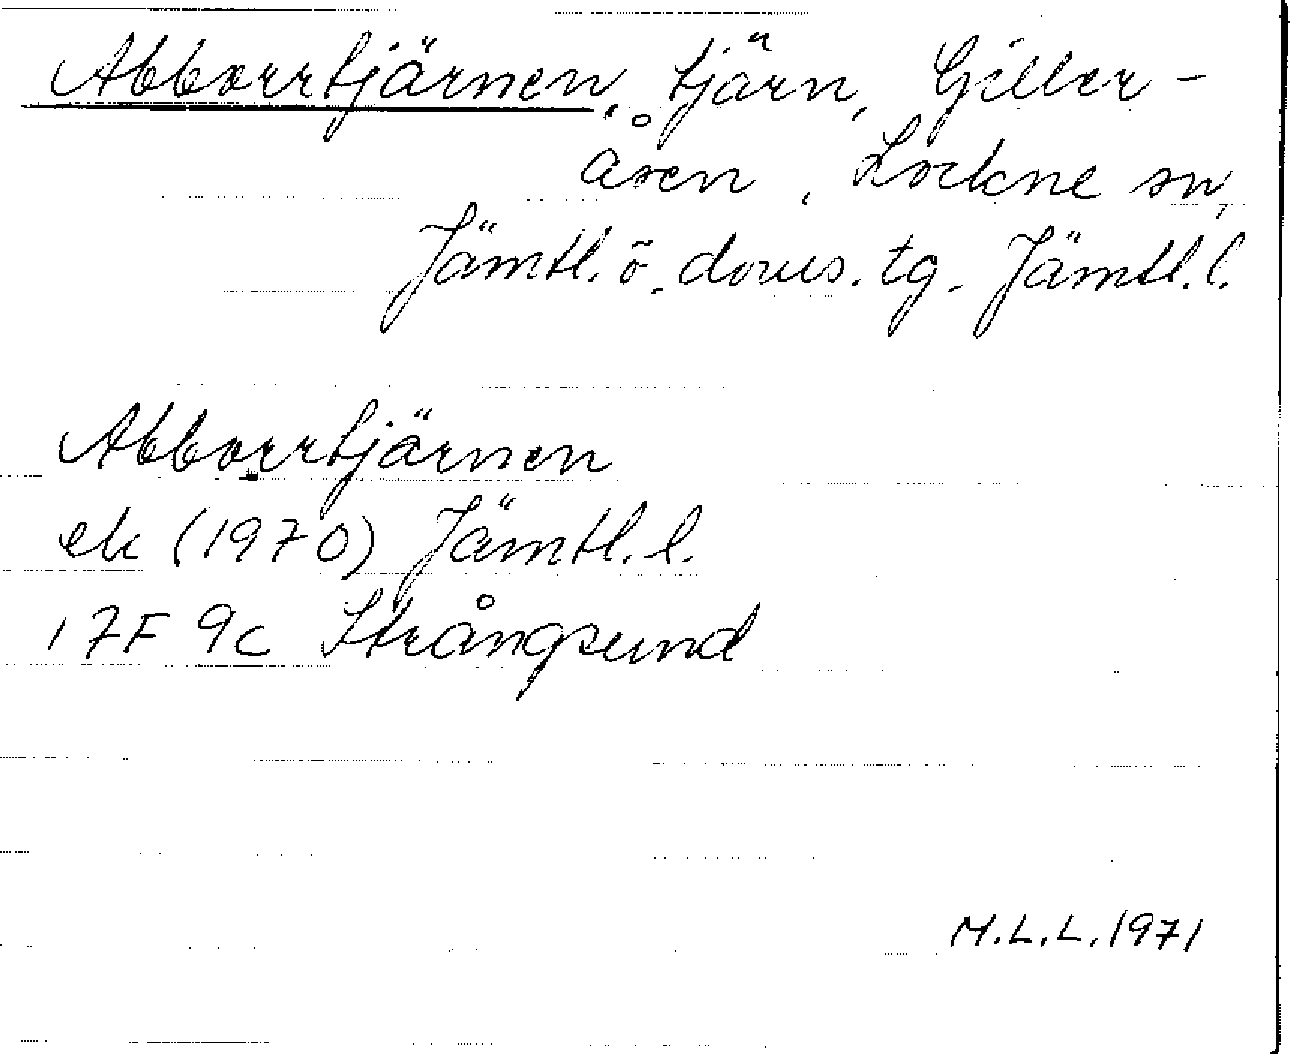 Abborrtjärnen, tjärn, Giller-
åsen, Lockne sn,
Jämtl. ö. doms. tg. Jämtl. l.
Abborrtjärnen
ek (1970) Jämtl. l.
17F 9c Strångsund
M.L.L. 1971